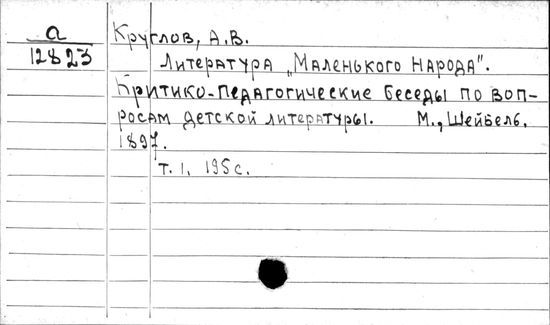 а
12823
Круглов, А.В.
Литература „Маленького народа".
Критико-педагогические беседы по воп-
росам детской литературы. М., Шейбель,
1897.
т. 1. 195 с.